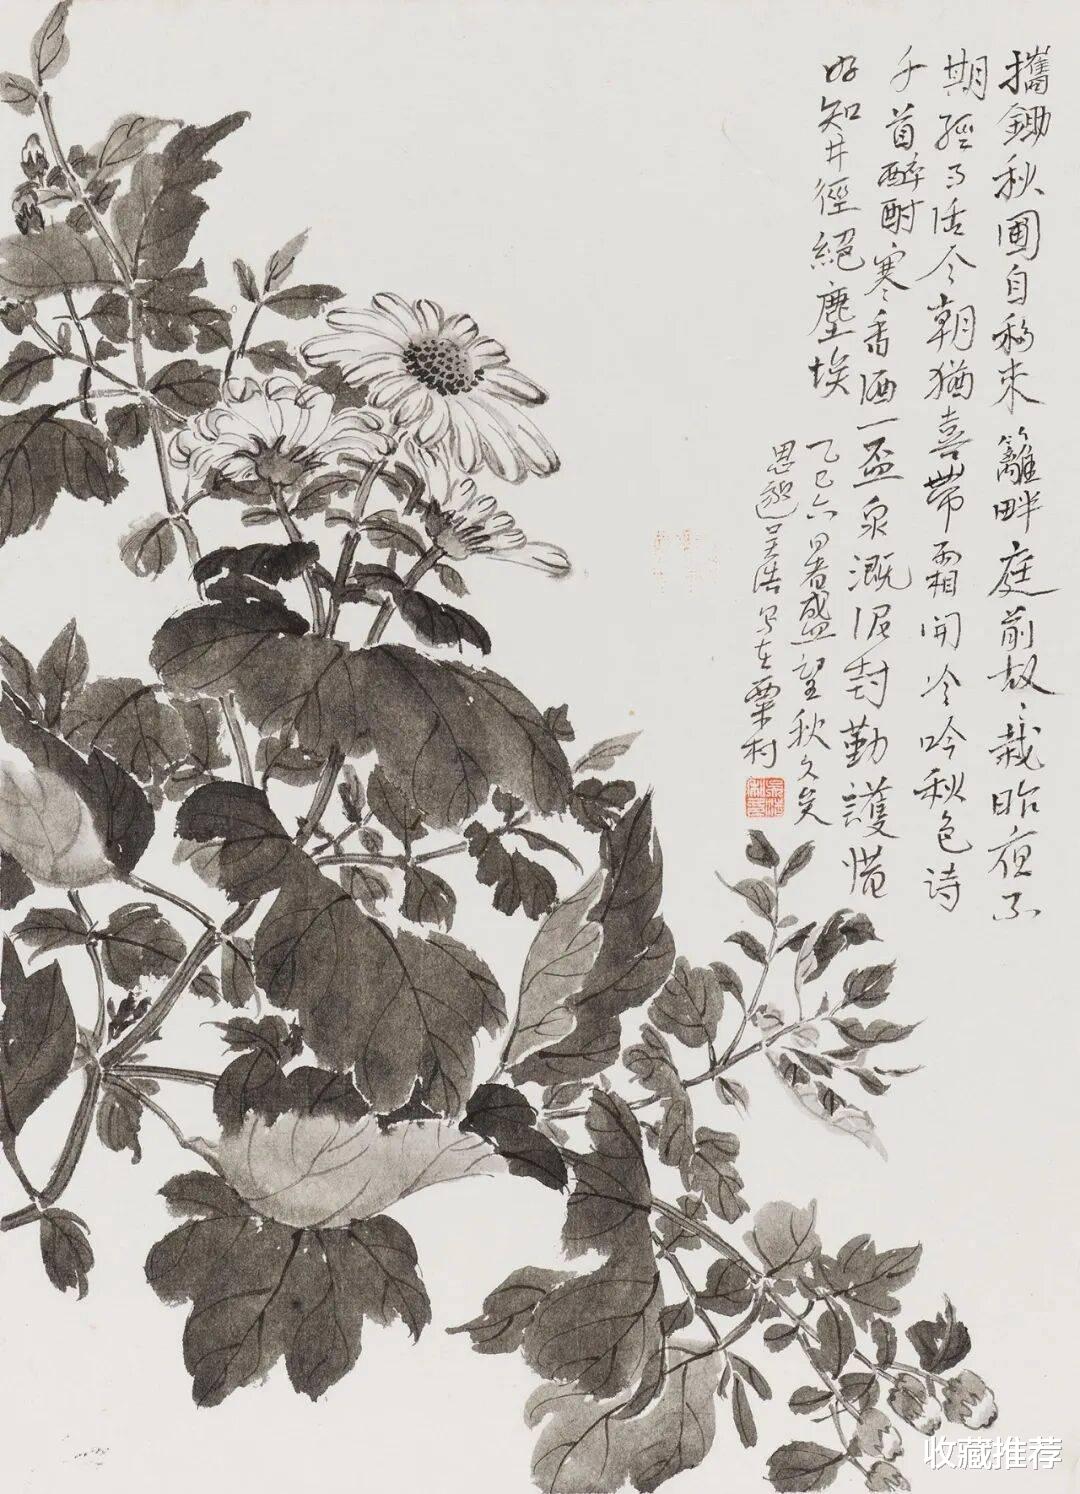 攜鋤秋圃自移來籬畔庭前故〻栽昨夜不
期經雨活今朝猶喜帶霜開冷吟秋色詩
千首醉酹寒香酒一盃泉溉泥封勤護惜
好知井徑絕塵埃
乙巳六月暑盛望秋久矣
思邈吴浩写在栗村
收藏推荐